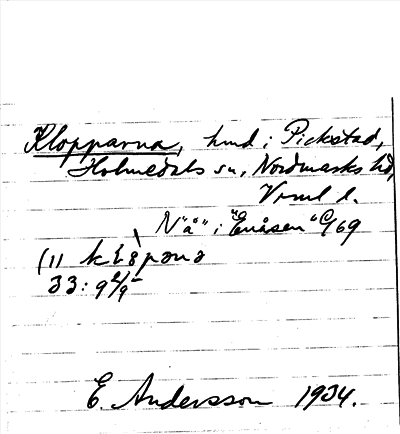 Klopparna, hmd i Pickstad,
Holmedals sn, Nordmarks hd,
Vrml l.
N "å" i "Enåsen" C/69
(1)
33:
E. Andersson 1934.